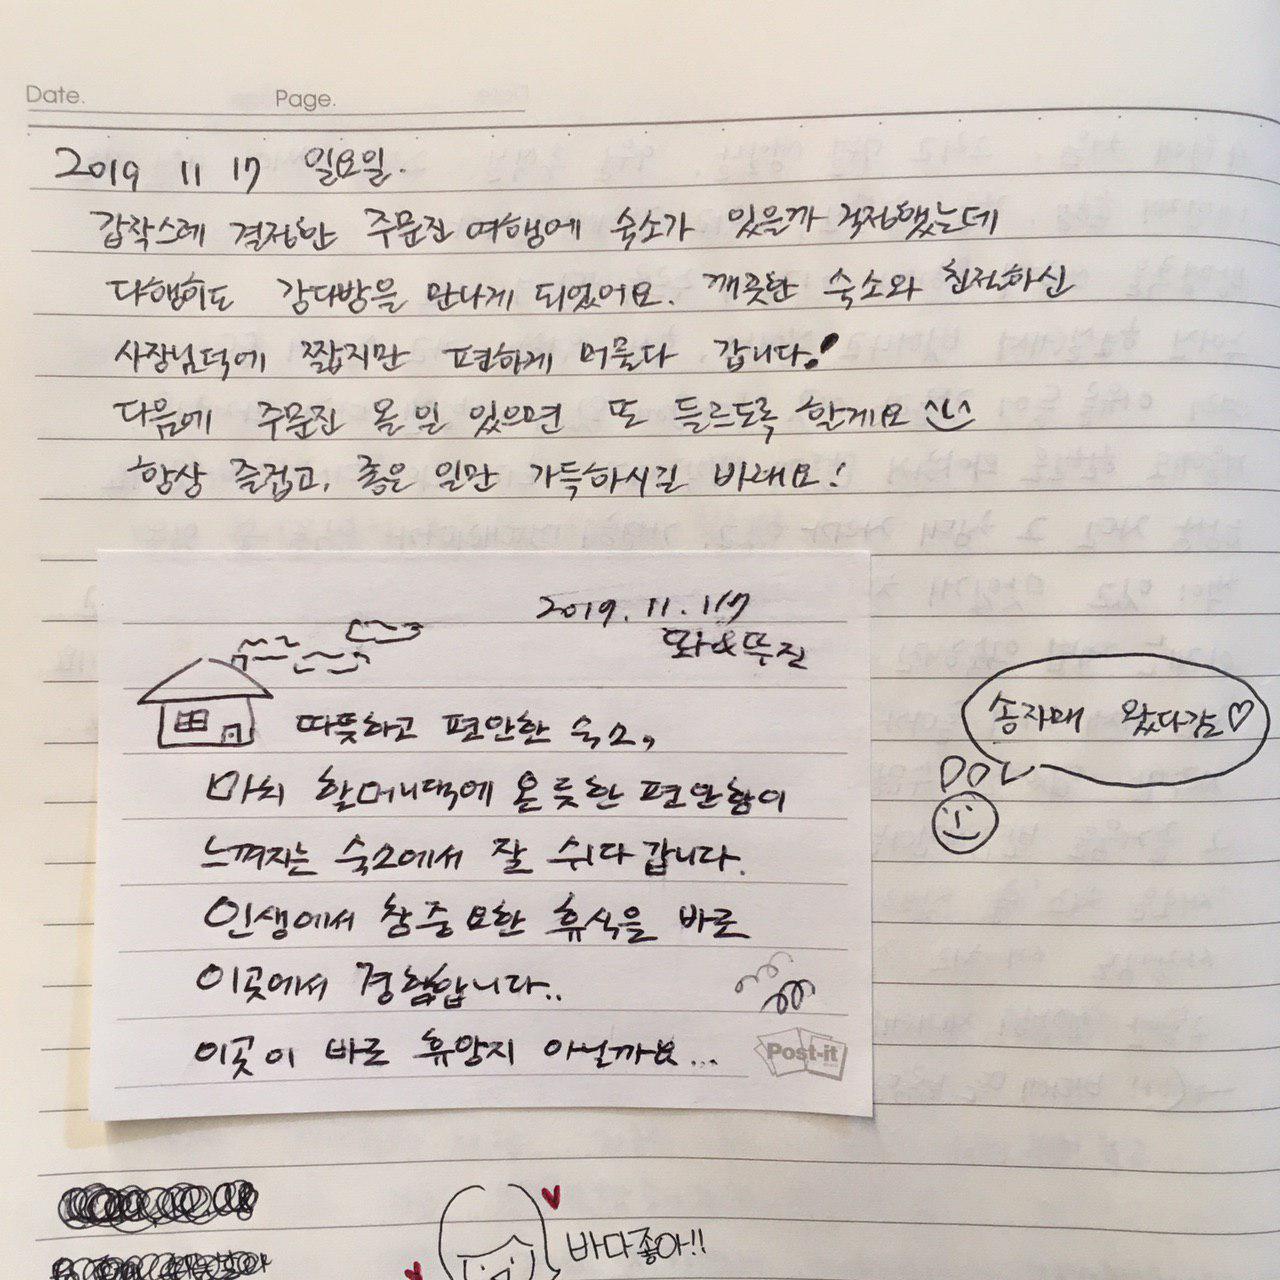 Date. Page.
2019 11 17 일요일.
갑작스레 결정한 주문진 여행에 숙소가 있을까 걱정했는데
다행히도 강다방을 만나게 되었어요. 깨끗한 숙소와 친절하신
사장님덕에 짧지만 편하게 머물다 갑니다!
다음에 주문진 올 일 있으면 또 들르도록 할게요
항상 즐겁고, 좋은 일만 가득하시길 바래요!
2019. 11. 17
따뜻하고 편안한 숙소,
마치 할머니댁에 온듯한 편안함이
느껴지는 숙소에서 잘 쉬다 갑니다.
인생에서 참 중요한 휴식을 바로
이곳에서 경험합니다..
이곳이 바로 휴양지 아닐까요...
Post-it
송자매 왔다감♡
바다좋아!!